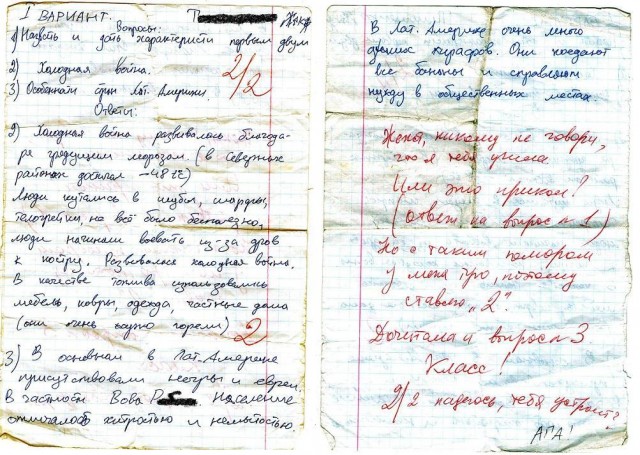 I ВАРИАНТ.
Вопросы:
1) Назвать и дать характеристи первым двум
2) Холодная война.
2/2
3) Особеннати стран Лат. Америки.
Ответы:
2) Холодная война развивалась благода-
ря грядущим морозам (в Северных
районах достигал -48
Люди кутались в шубы, шарфы,
телогрейки, но всё было бесполезно,
люди начинали воевать из-за дров
к костру. Развивалася холодная война.
В качестве топлива использовались
мебель, ковры, одежда, частные дома
(они очень горели)
2
3) В основном в Лат. Америке
присутствовали негры и евреи.
В частности Вова Р. Население
отличалось хитростью и немытостью.
В Лат. Америке очень много
жирафов. Они поедают
все бананы и справляют
нужду в общественных местах.
никому не говори,
что я тебя
Или это прикол?
(ответ на вопрос n 1)
Но с таким юмором
у меня туго, поэтому
ставлю "2".
Дочитала и вопрос n 3
Класс!
2/2 надеюсь, тебя устроит?
АГА!